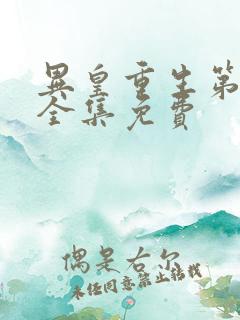 異皇重生第
全集免費
偶是右尔
未经同意禁止转载